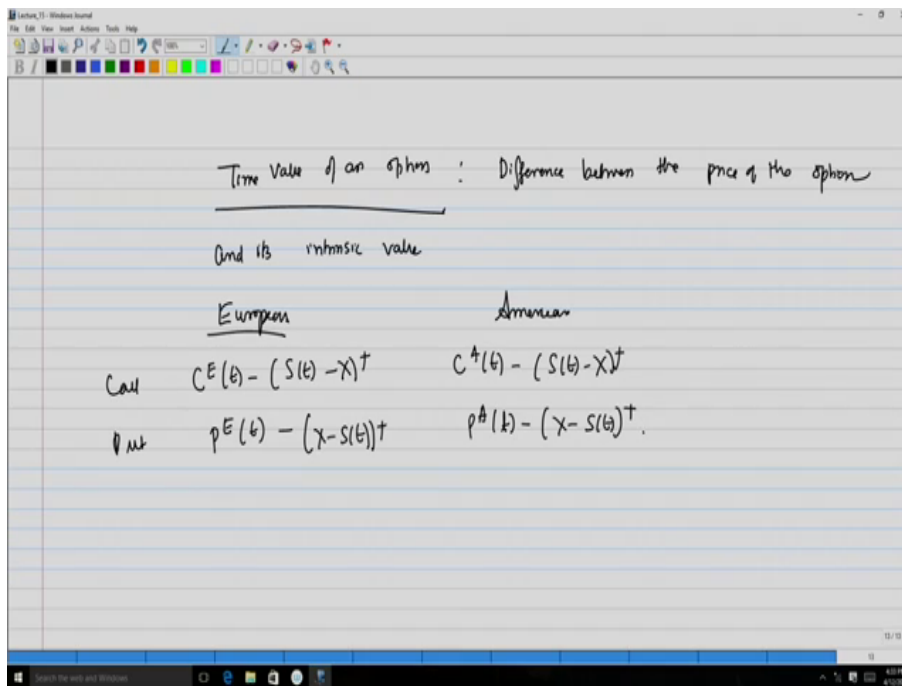 Lecture_15 - Windows Journal
File Edit View Insert Actions Tools Help
B I
Time Value of an option : Difference between the price of the option
and its intrinsic value
European American
Call C^E(t) - (S(t) - X)^+ C^A(t) - (S(t) - X)^+
Put P^E(t) - (X - S(t))^+ P^A(t) - (X - S(t))^+.
13/13
13
Search the web and Windows